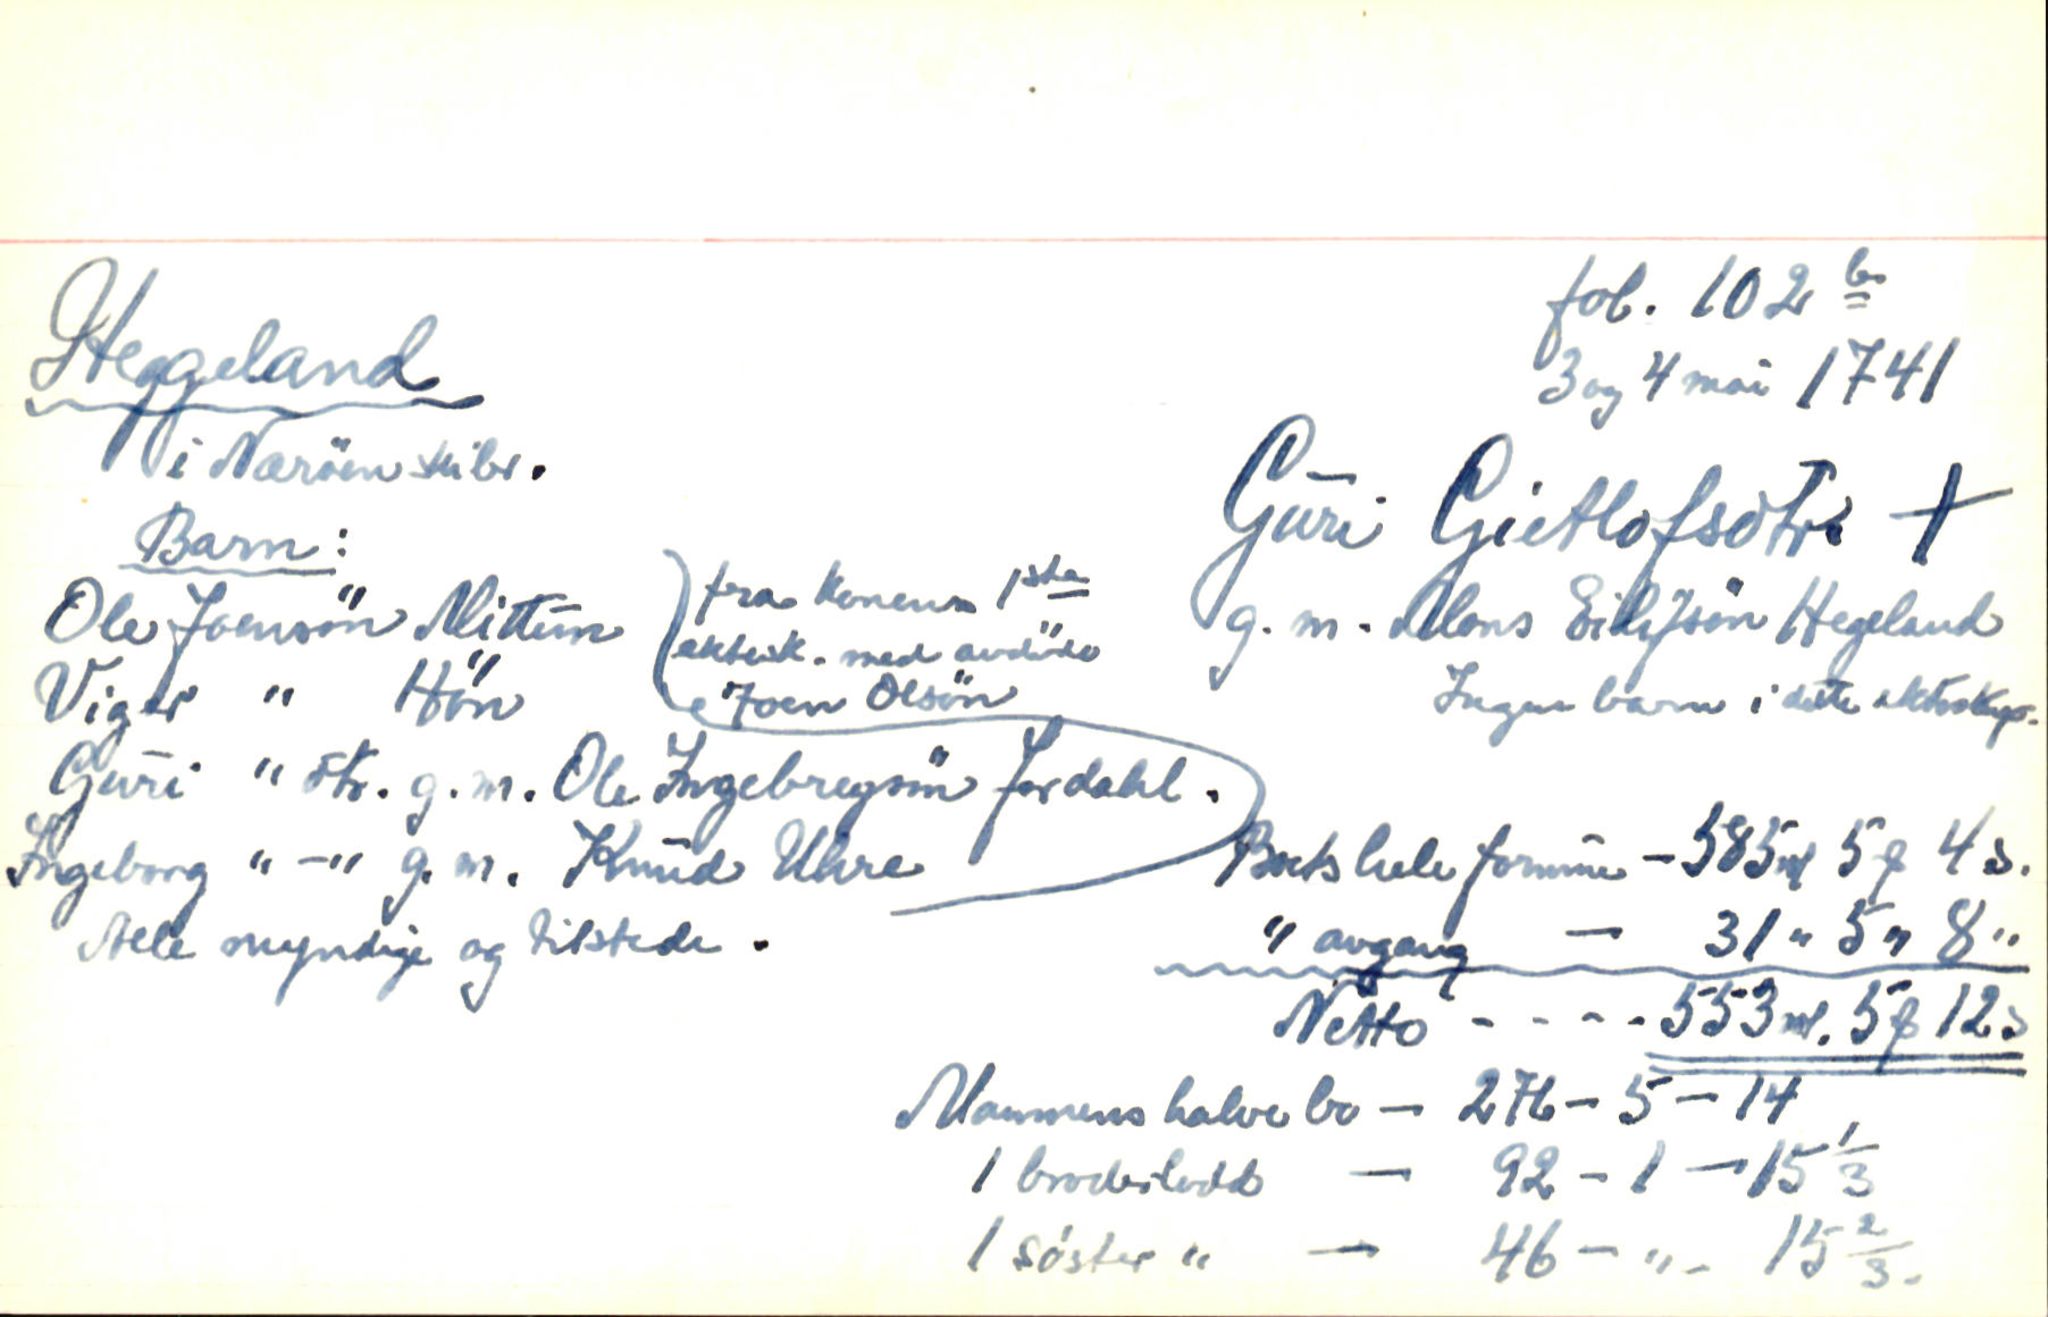 fol. 102 b
3 og 4 mai 1741
Heggeland
i Næröen skibr.
Guri Gietlofsdtr. +
g. m. Mons Eilifsön Hegeland
Ingen barn i dette ektesksp.
Barn:
Ole Joensön Mittun
Viger " Hön
fra konens 1ste
ektesk. med avdöde
Joen Olsön
Guri " dtr. g. m. Ole Ingebregsön Jordahl.
Ingeborg " -" g. m. Knud Uhre
Alle myndige og tilstede.
Boets hele formue - 585 rd 5 ƒ 4 s.
" avgang - 31 " 5 " 8 "
Netto - - - - 553 rd. 5 ƒ 12 s
Mannens halve bo - 276 - 5 - 14
1 broderlodd - 92 - 1 - 15 1/3
1 söster " - 46 - " - 15 2/3.